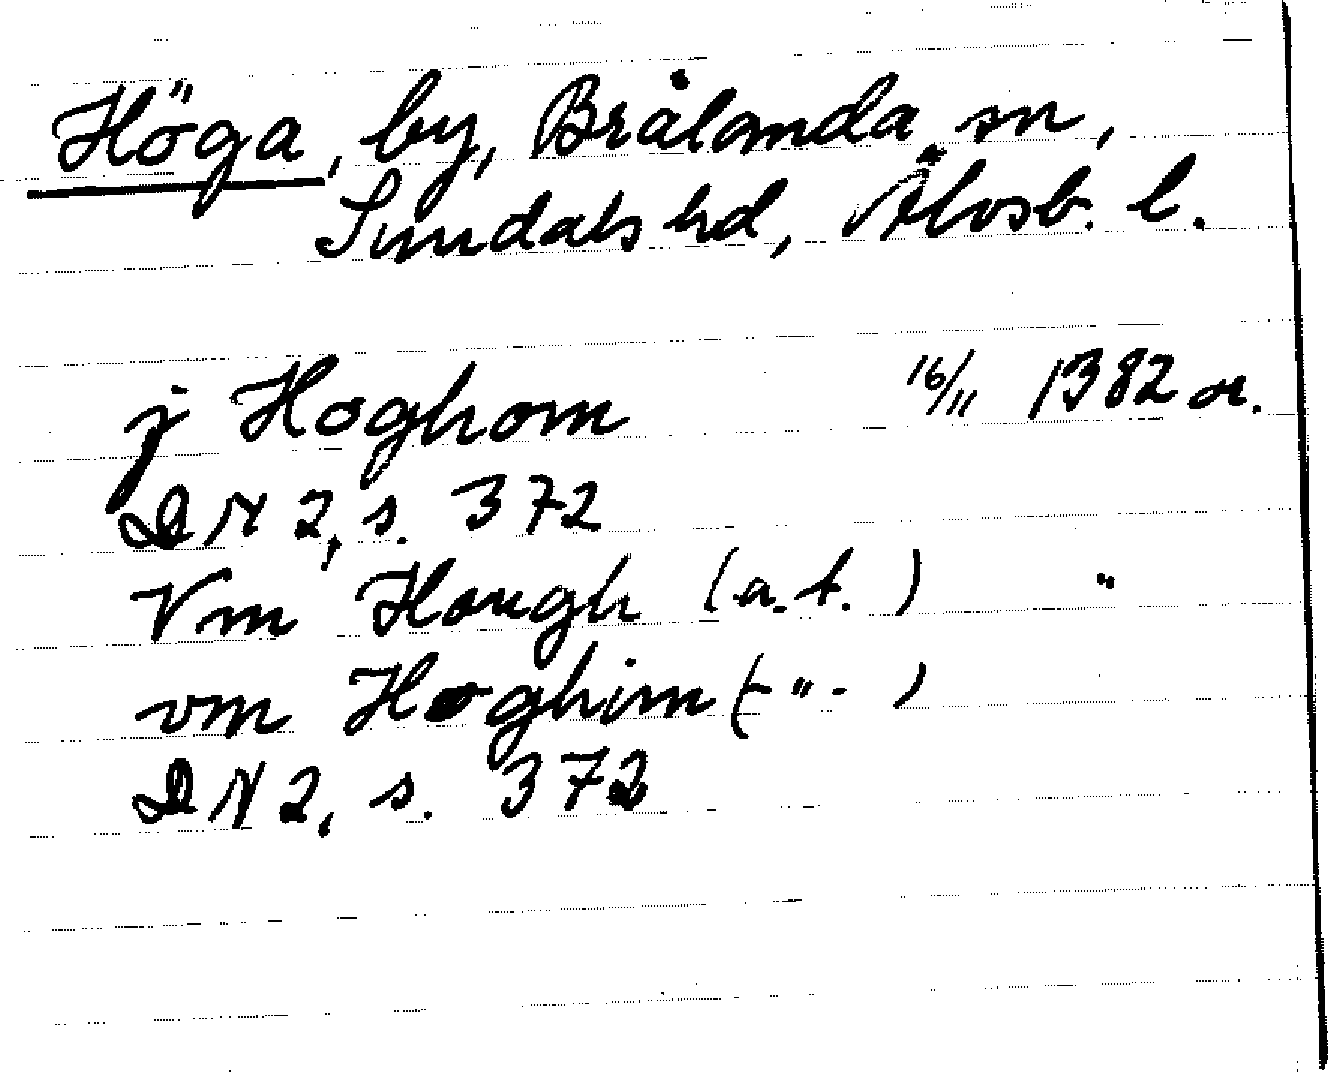 Höga, by, Brålanda sn,
Sundals hd, Älvsb. l.
j Høghom 16/11 1382 or.
DN 2, s. 372
Vm Haugh (a.t.) "
vm Høghim (-"-)
DN 2, s. 372